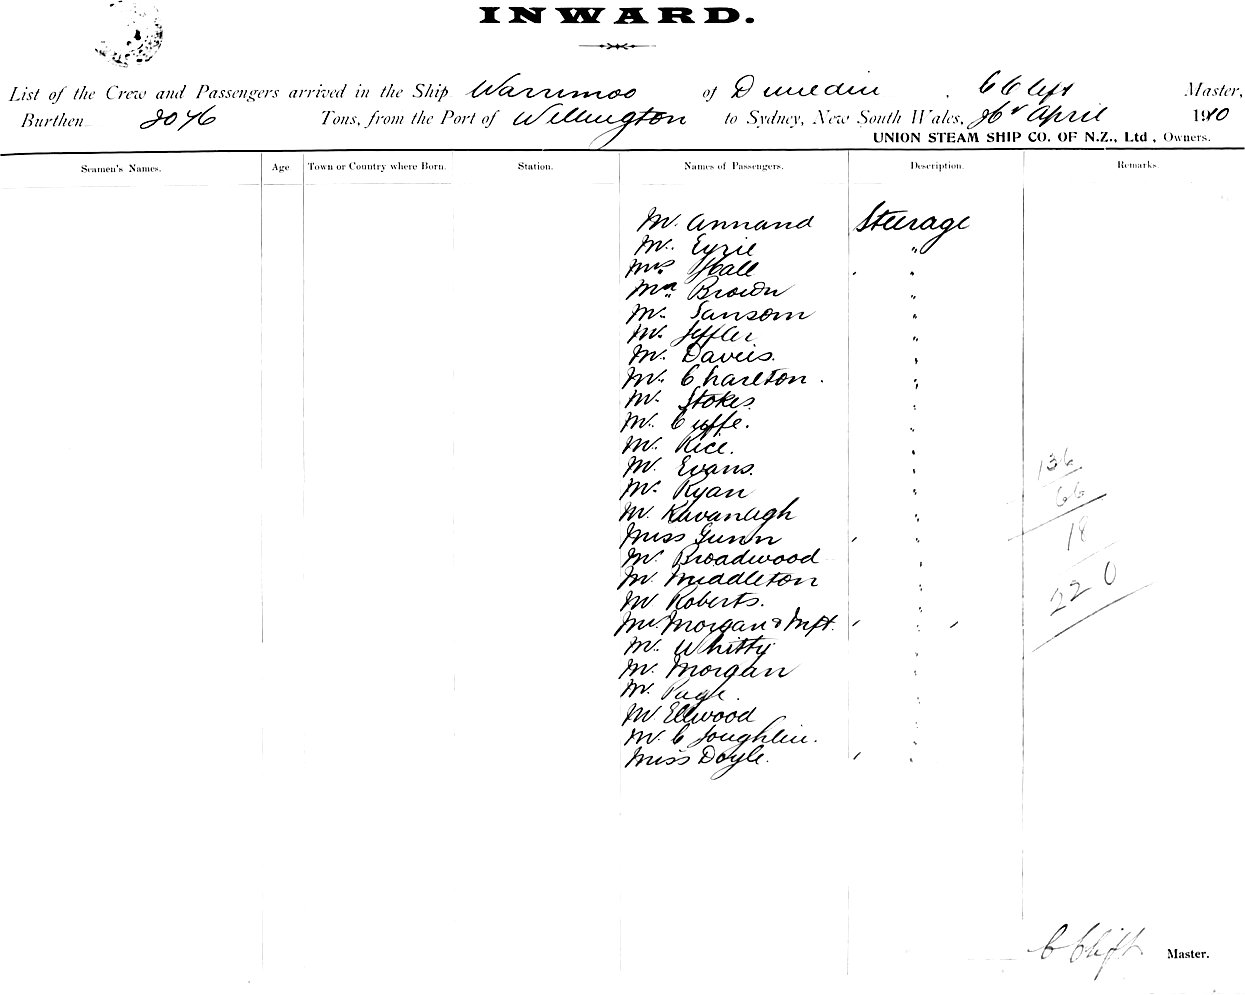 INWARD.
List of the Crew and Passengers arrived in the Ship Warrimoo of Dunedin, C Clift Master,
Burthen 2076 Tons, from the Port of Wellington to Sydney, New South Wales, 26th April 1910
UNION STEAM SHIP CO. OF N.Z., Ltd, Owners.
Seamen's Names. Age Town or Country where Born. Station. Names of Passengers. Description. Remarks.
Mr. Annand Steerage
Mr. Eyrie "
Mrs Hall "
Brown "
Mr. Sansom "
Mr. "
Mr. Davies. "
Mr. Charlton. "
Mr. Stokes "
Mr. Cuffe. "
Mr. Rice. "
Mr. Evans. "
136
Mr. Ryan "
66
Mr. Kavanagh "
18
Miss Gunn "
Mr Broadwood "
Mr. Middleton "
220
Mr Roberts. "
Morgan & Inft. "
Mr. Whitty "
Mr. Morgan "
Mr. "
Mr Ellwood "
Mr. Coughlin. "
Miss Doyle. "
C Clift Master.